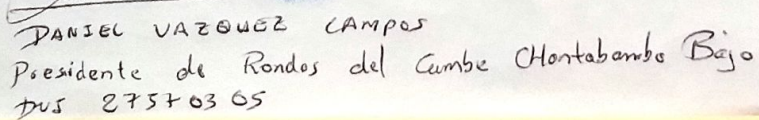 DANIEL VAZQUEZ CAMPOS
Presidente de Rondas del Cumbe CHontabamba Bajo
DNI 27570305